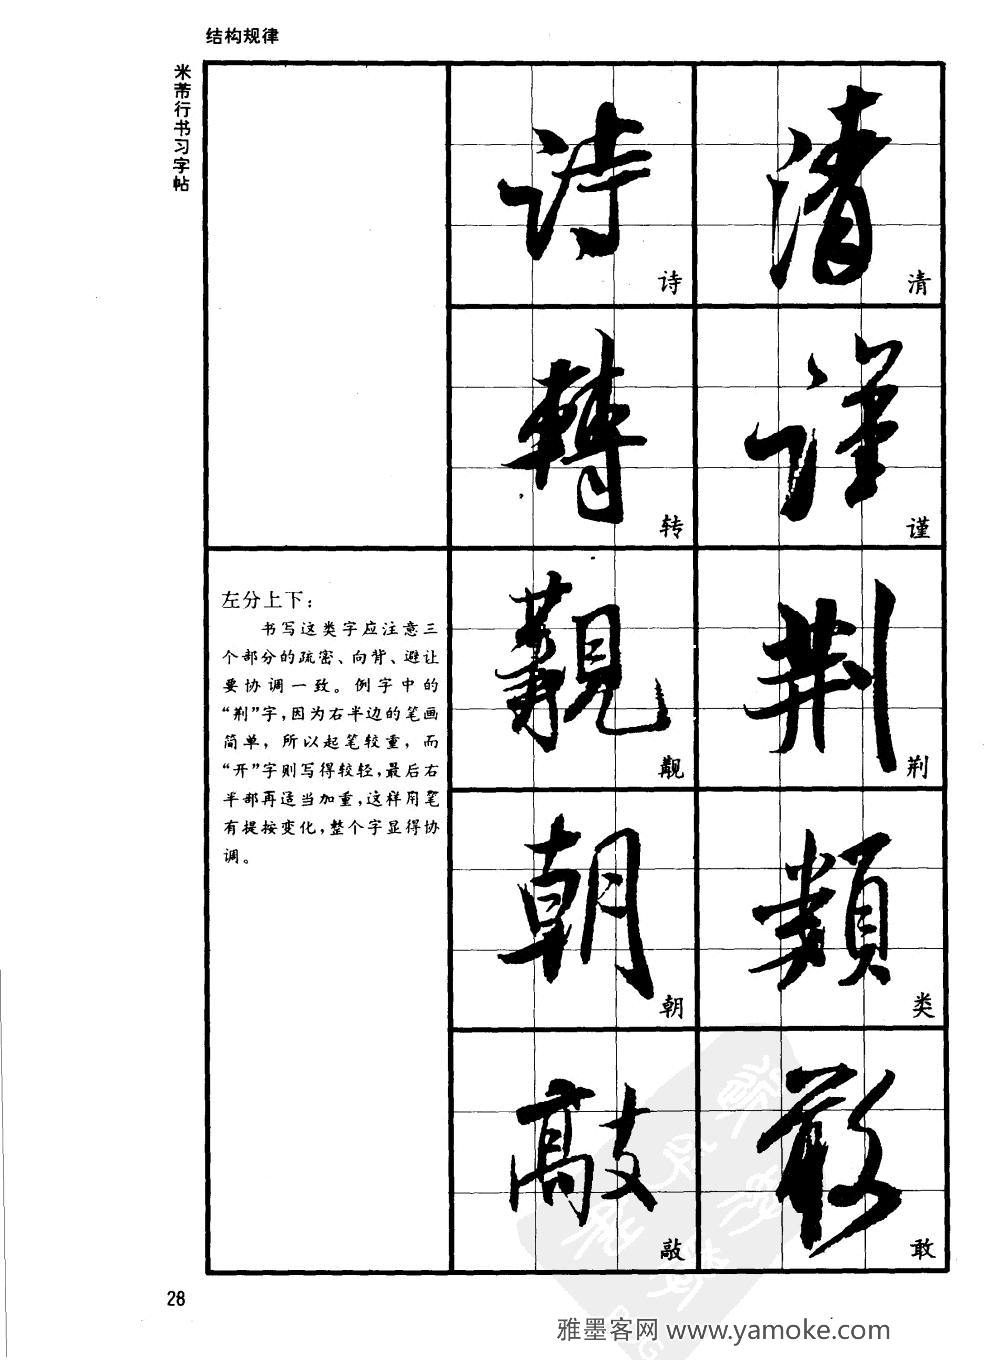 结构规律
米芾行书习字帖
清
诗
谨
转
左分上下：
书写这类字应注意三
个部分的疏密、向背、避让
要协调一致。例字中的
“荆”字，因为右半边的笔画
简单，所以起笔较重，而
“开”字则写得较轻，最后右
半部再适当加重，这样用笔
有提按变化，整个字显得协
调。
荆
觏
类
朝
敢
敲
清
詩
謹
轉
荆
覯
類
朝
敢
敲
28
雅墨客网 www.yamoke.com